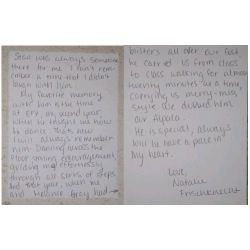 Sean was always someone
there for me. I can't rem-
ember a time that I didn't
dance with him.
My favorite memory
with him is the time
at EPV, my second year
when he taught me how
to dance. That's how
I will always remember
him. Dancing across the
floor shouting encouragement,
gliding effortlessly
through all sorts of steps
And that year, when me
and Melanie Gray had →
blisters all over our feet
he carried us from class
to class walking for almost
twenty minutes at a time,
carrying us merry-miss,
style. We dubbed him
our Alpaca.
He is special, always
will he have a place in
my heart.
Love,
Natalie
Frischknecht